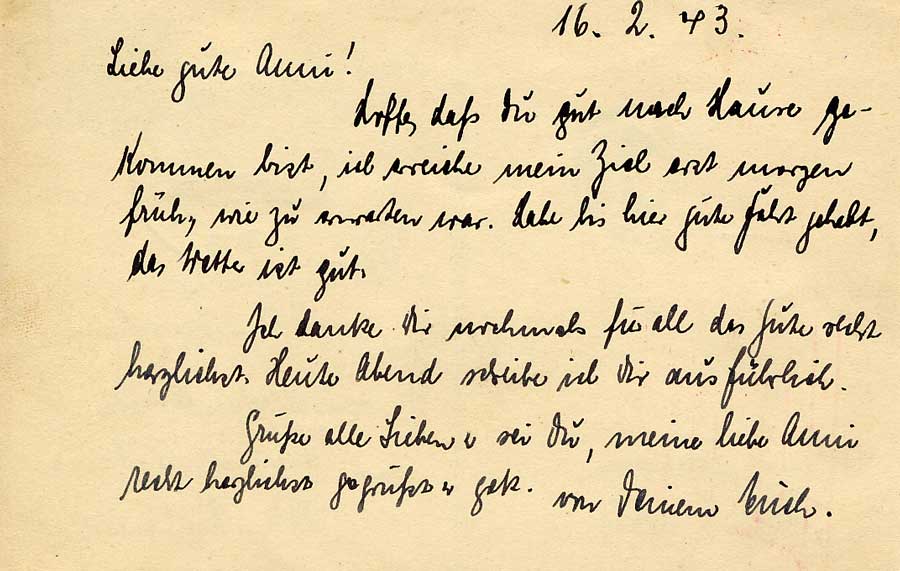 16. 2. 43.
Liebe gute Anni!
Hoffe, daß Du gut nach Hause ge-
kommen bist, ich erreiche mein Ziel erst morgen
früh, wie zu erwarten war. Habe bis hier gute Fahrt gehabt,
das Wetter ist gut.
Ich danke Dir nochmals für all das Gute recht
herzlichst. Heute Abend schreibe ich Dir ausführlich.
Grüße alle Lieben u sei Du, meine liebe Anni
recht herzlichst gegrüßt u gek. von Deinem Erich.